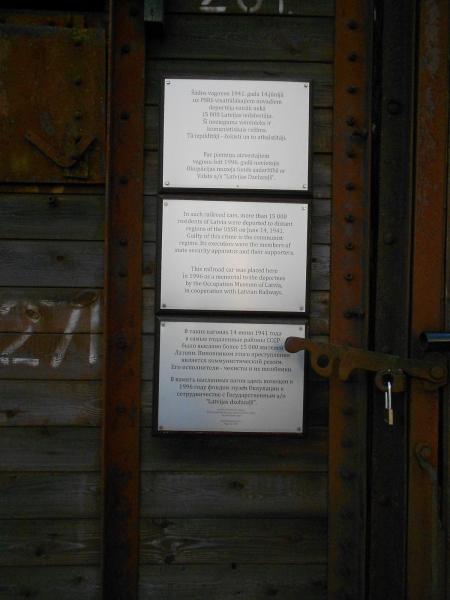 201.
Šādos vagonos 1941. gada 14.jūnijā
uz PSRS visattālākajiem novadiem
deportēja vairāk nekā
15 000 Latvijas iedzīvotāju.
Šī nozieguma vaininieks ir
komunistiskais režīms.
Tā izpildītāji - čekisti un to atbalstītāji.
Par piemiņu aizvestajiem
vagonu šeit 1996. gadā novietojis
Okupācijas muzeja fonds sadarbībā ar
Valsts a/s "Latvijas Dzelzceļš".
In such railroad cars, more than 15 000
residents of Latvia were deported to distant
regions of the USSR on June 14, 1941.
Guilty of this crime is the communist
regime. Its executors were the members of
state security apparatus and their supporters.
This railroad car was placed here
in 1996 as a memorial to the deportees
by the Occupation Museum of Latvia,
in cooperation with Latvian Railways.
В таких вагонах 14 июня 1941 года
в самые отдаленные районы СССР
было выслано более 15 000 жителей
Латвии. Виновником этого преступления
является коммунистический режим.
Его исполнители - чекисты и их пособники.
В память высланных вагон здесь помещен в
1996 году фондом музея Оккупации в
сотрудничестве с Государственным а/о
"Latvijas dzelzceļš".
27T